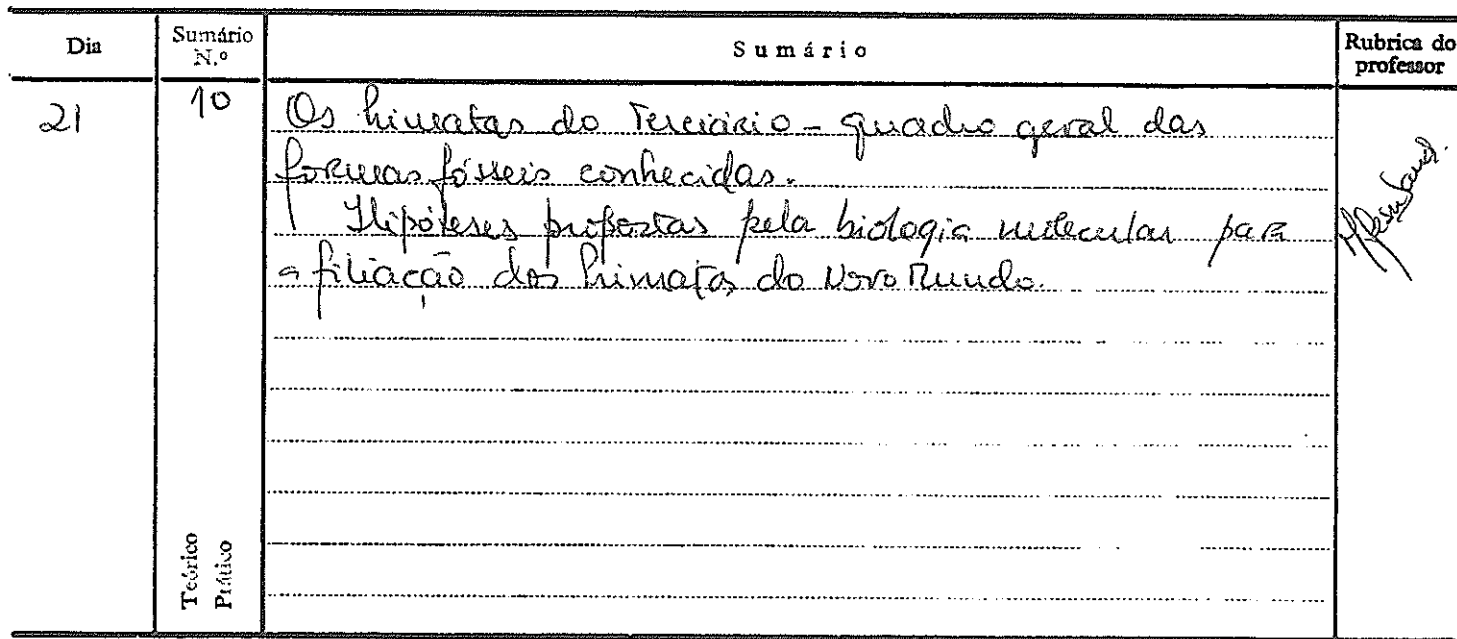 Dia
Sumário N.º
Sumário
Rubrica do professor
21
10
Os Primatas do Terciário - quadro geral das
formas fósseis conhecidas.
Hipóteses propostas pela biologia molecular para
a filiação dos Primatas do Novo Mundo.
Teórico
Prático